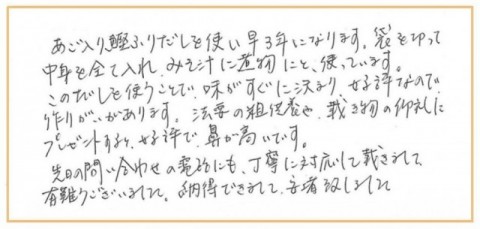 あご入り鰹ふりだしを使い早3年になります。袋を切って
中身を全て入れ、みそ汁に煮物にと、使っています。
このだしを使うことで、味がすぐに決まり、好評なので
作りがいがあります。法要の粗供養や、戴き物の御礼に
プレゼントするも、好評で鼻が高いです。
先日の問い合わせの電話にも、丁寧に対応して戴きまして、
有難うございました。納得できまして、安堵致しました